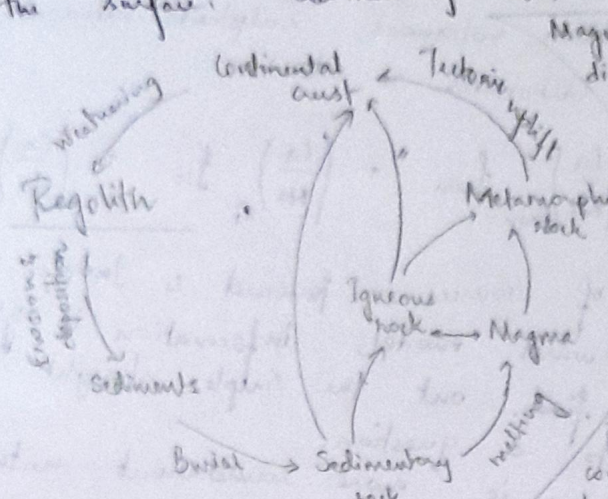 the surface.
Magm
di
Continental
crust
Tectonic uplift
Weathering
Regolith
Metamorphi
rock
Erosion &
deposition
Igneous
rock
Magma
Sediments
melting
Burial
Sedimentary
rock
co